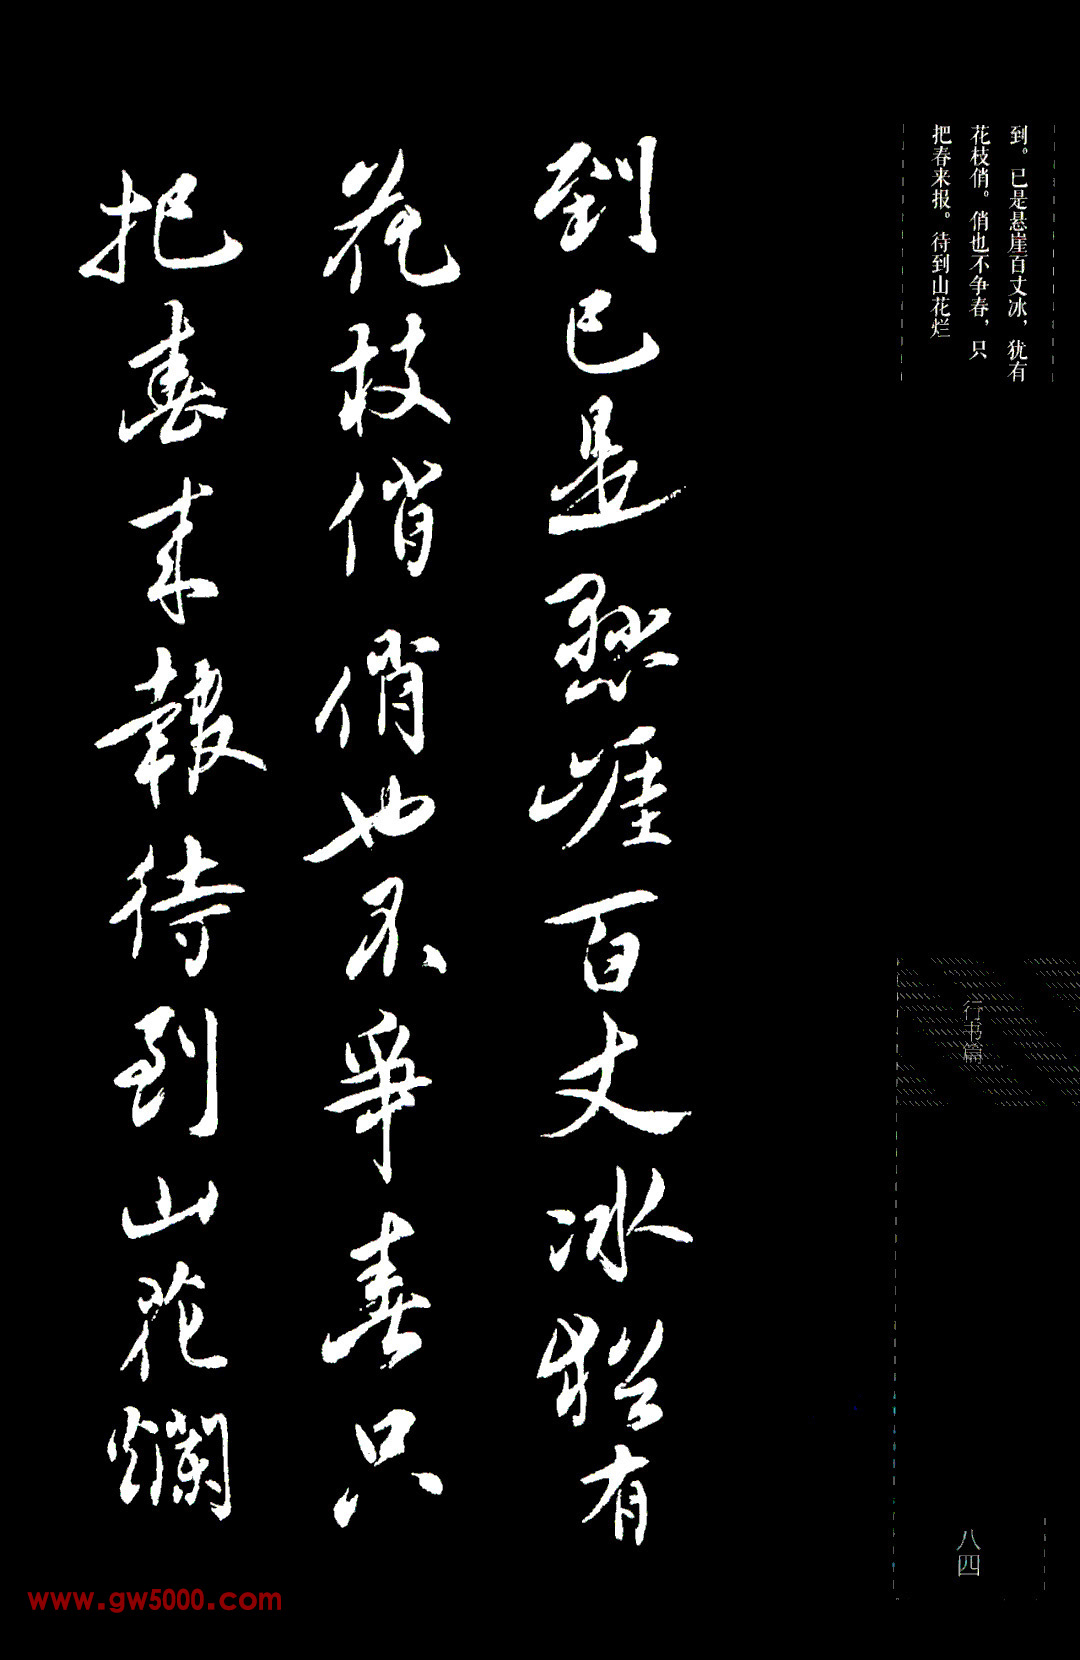 到。已是悬崖百丈冰，犹有
花枝俏。俏也不争春，只
把春来报。待到山花烂
到已是懸崖百丈冰猶有
花枝俏俏也不爭春只
把春来報待到山花爛
行书篇
八四
www.gw5000.com